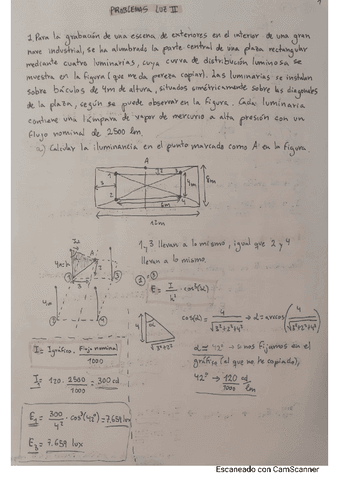 PROBLEMAS LUZ II
1
1. Para la grabación de una escena de exteriores en el interior de una gran
nave industrial, se ha alumbrado la parte central de una plaza rectangular
mediante cuatro luminarias, cuya curva de distribución luminosa se
muestra en la figura (que me da pereza copiar). Las luminarias se instalan
sobre báculos de 4m de altura, situados simétricamente sobre las diagonales
de la plaza, según se puede observar en la figura. Cada luminaria
contiene una lámpara de vapor de mercurio a alta presión con un
flujo nominal de 2500 lm.
a) Calcular la iluminancia en el punto marcado como A en la figura
A
1
3
2
4
4m
8m
6m
12m
1 y 3 llevan a lo mismo, igual que 2 y 4
llevan a lo mismo.
E = I/h² · cos³(α)
cos(α) = 4/√(3²+2²+4²) → α = arccos(4/√(3²+2²+4²))
α = 42° → nos fijamos en el
gráfico (el que no he copiado),
42° → 120 cd/1000 lm
I = I gráfico · Flujo nominal/1000
I = 120 · 2500/1000 = 300 cd
= 300/4² · cos³(42°) = 7.659 lux
= 7.659 lux
Escaneado con CamScanner